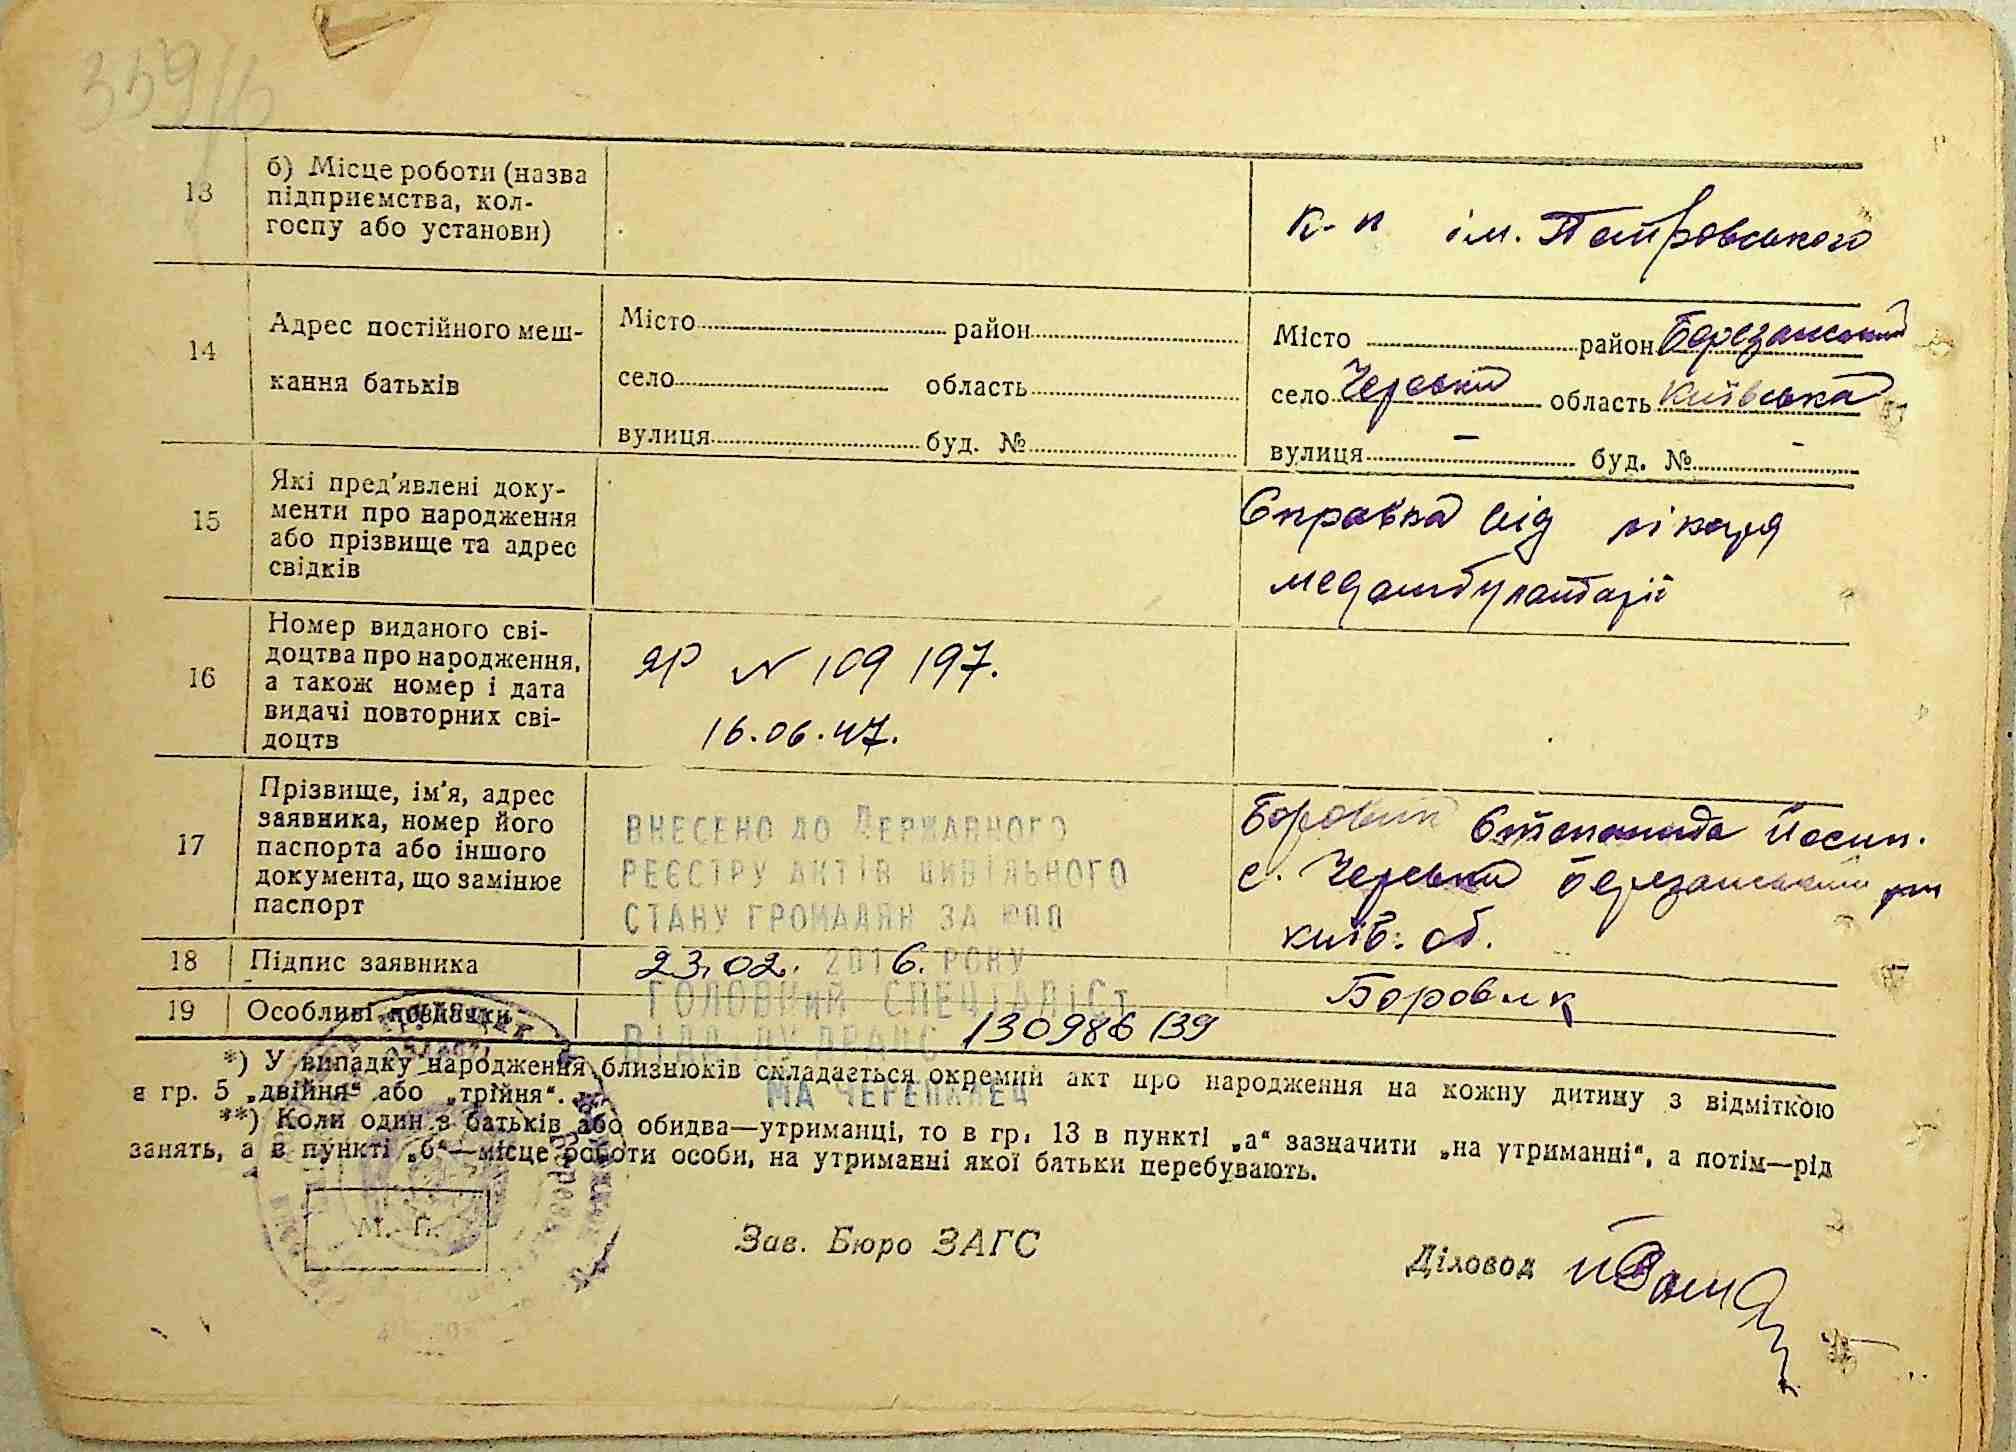 359/6
13
б) Місце роботи (назва
підприємства, кол-
госпу або установи)
к-п ім. Петровського
14
Адрес постійного меш-
кання батьків
Місто район
село область
вулиця буд. №
Місто район Березанський
село Черевки область Київська
вулиця - буд. № -
15
Які пред'явлені доку-
менти про народження
або прізвище та адрес
свідків
Справка від лікаря
медамбулаторії
16
Номер виданого сві-
доцтва про народження,
а також номер і дата
видачі повторних сві-
доцтв
ЯР N 109197.
16.06.47.
17
Прізвище, ім'я, адрес
заявника, номер його
паспорта або іншого
документа, що замінює
паспорт
ВНЕСЕНО ДО ДЕРЖАВНОГО
РЕЄСТРУ АКТІВ ЦИВІЛЬНОГО
СТАНУ ГРОМАДЯН ЗА ЮПП
23.02. 2016. РОКУ
ГОЛОВНИЙ СПЕЦІАЛІСТ
ВІДДІЛУ ДРАЦС 130986139
Боровик Степанида Йосип.
с. Черевки Березанський р-н
київ. об.
18
Підпис заявника
Боровик
19
Особливі позначки
*) У випадку народження близнюків складається окремий акт про народження на кожну дитину з відміткою
в гр. 5 „двійня“ або „трійня“.
**) Коли один з батьків або обидва—утриманці, то в гр. 13 в пункті „а“ зазначити „на утриманні“, а потім—рід
занять, а в пункті „б“—місце роботи особи, на утриманні якої батьки перебувають.
М. П.
Зав. Бюро ЗАГС
Діловод